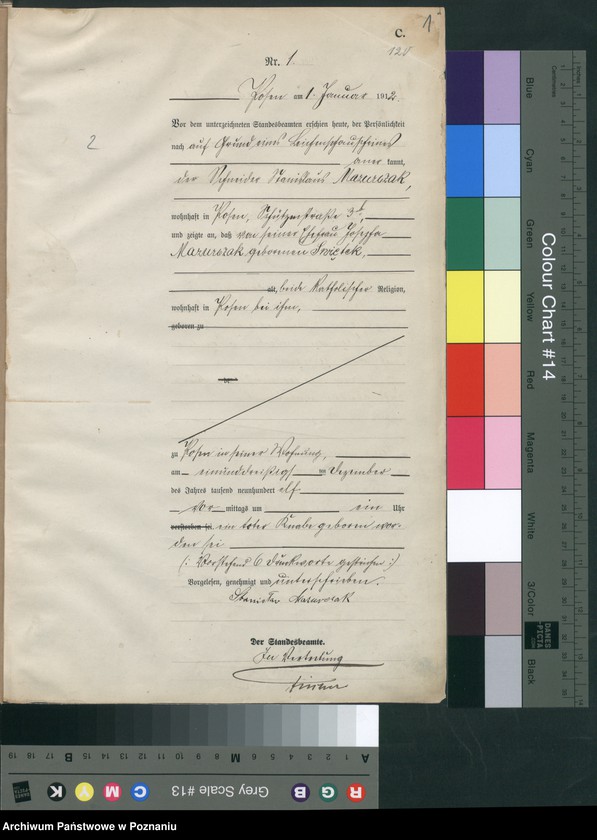 1
C.
128
Nr. 1.
Posen am 1. Januar 1912.
2
Vor dem unterzeichneten Standesbeamten erschien heute, der Persönlichkeit
nach auf Grund eines Leichenschauscheines
aner kannt,
der Schneider Stanislaus Mazurczak,
wohnhaft in Posen, Schützenstraße 3
und zeigte an, daß von seiner Ehefrau Josepha
Mazurczak geborenen Swiątek,
alt, beide katholischer Religion,
wohnhaft in Posen bei ihm,
geboren zu
zu Posen in seiner Wohnung,
am einunddreißigsten Dezember
des Jahres tausend neunhundert elf
Vor mittags um ein Uhr
verstorben sei ein toter Knabe geboren wor-
den sei
(: Vorstehend 6 Druckworte gestrichen :)
Vorgelesen, genehmigt und unterschrieben.
Stanisław Mazurczak
Der Standesbeamte.
In Vertretung
Colour Chart #14
Blue
Cyan
Green
Yellow
Red
Magenta
White
3/Color
Black
Inches
Centimetres
DANES
-PICTA
Grey Scale #13
R G B
C M Y K
A 1 2 3 4 5 6 M 8 9 10 11 12 13 14 15 B 17 18 19
Archiwum Państwowe w Poznaniu